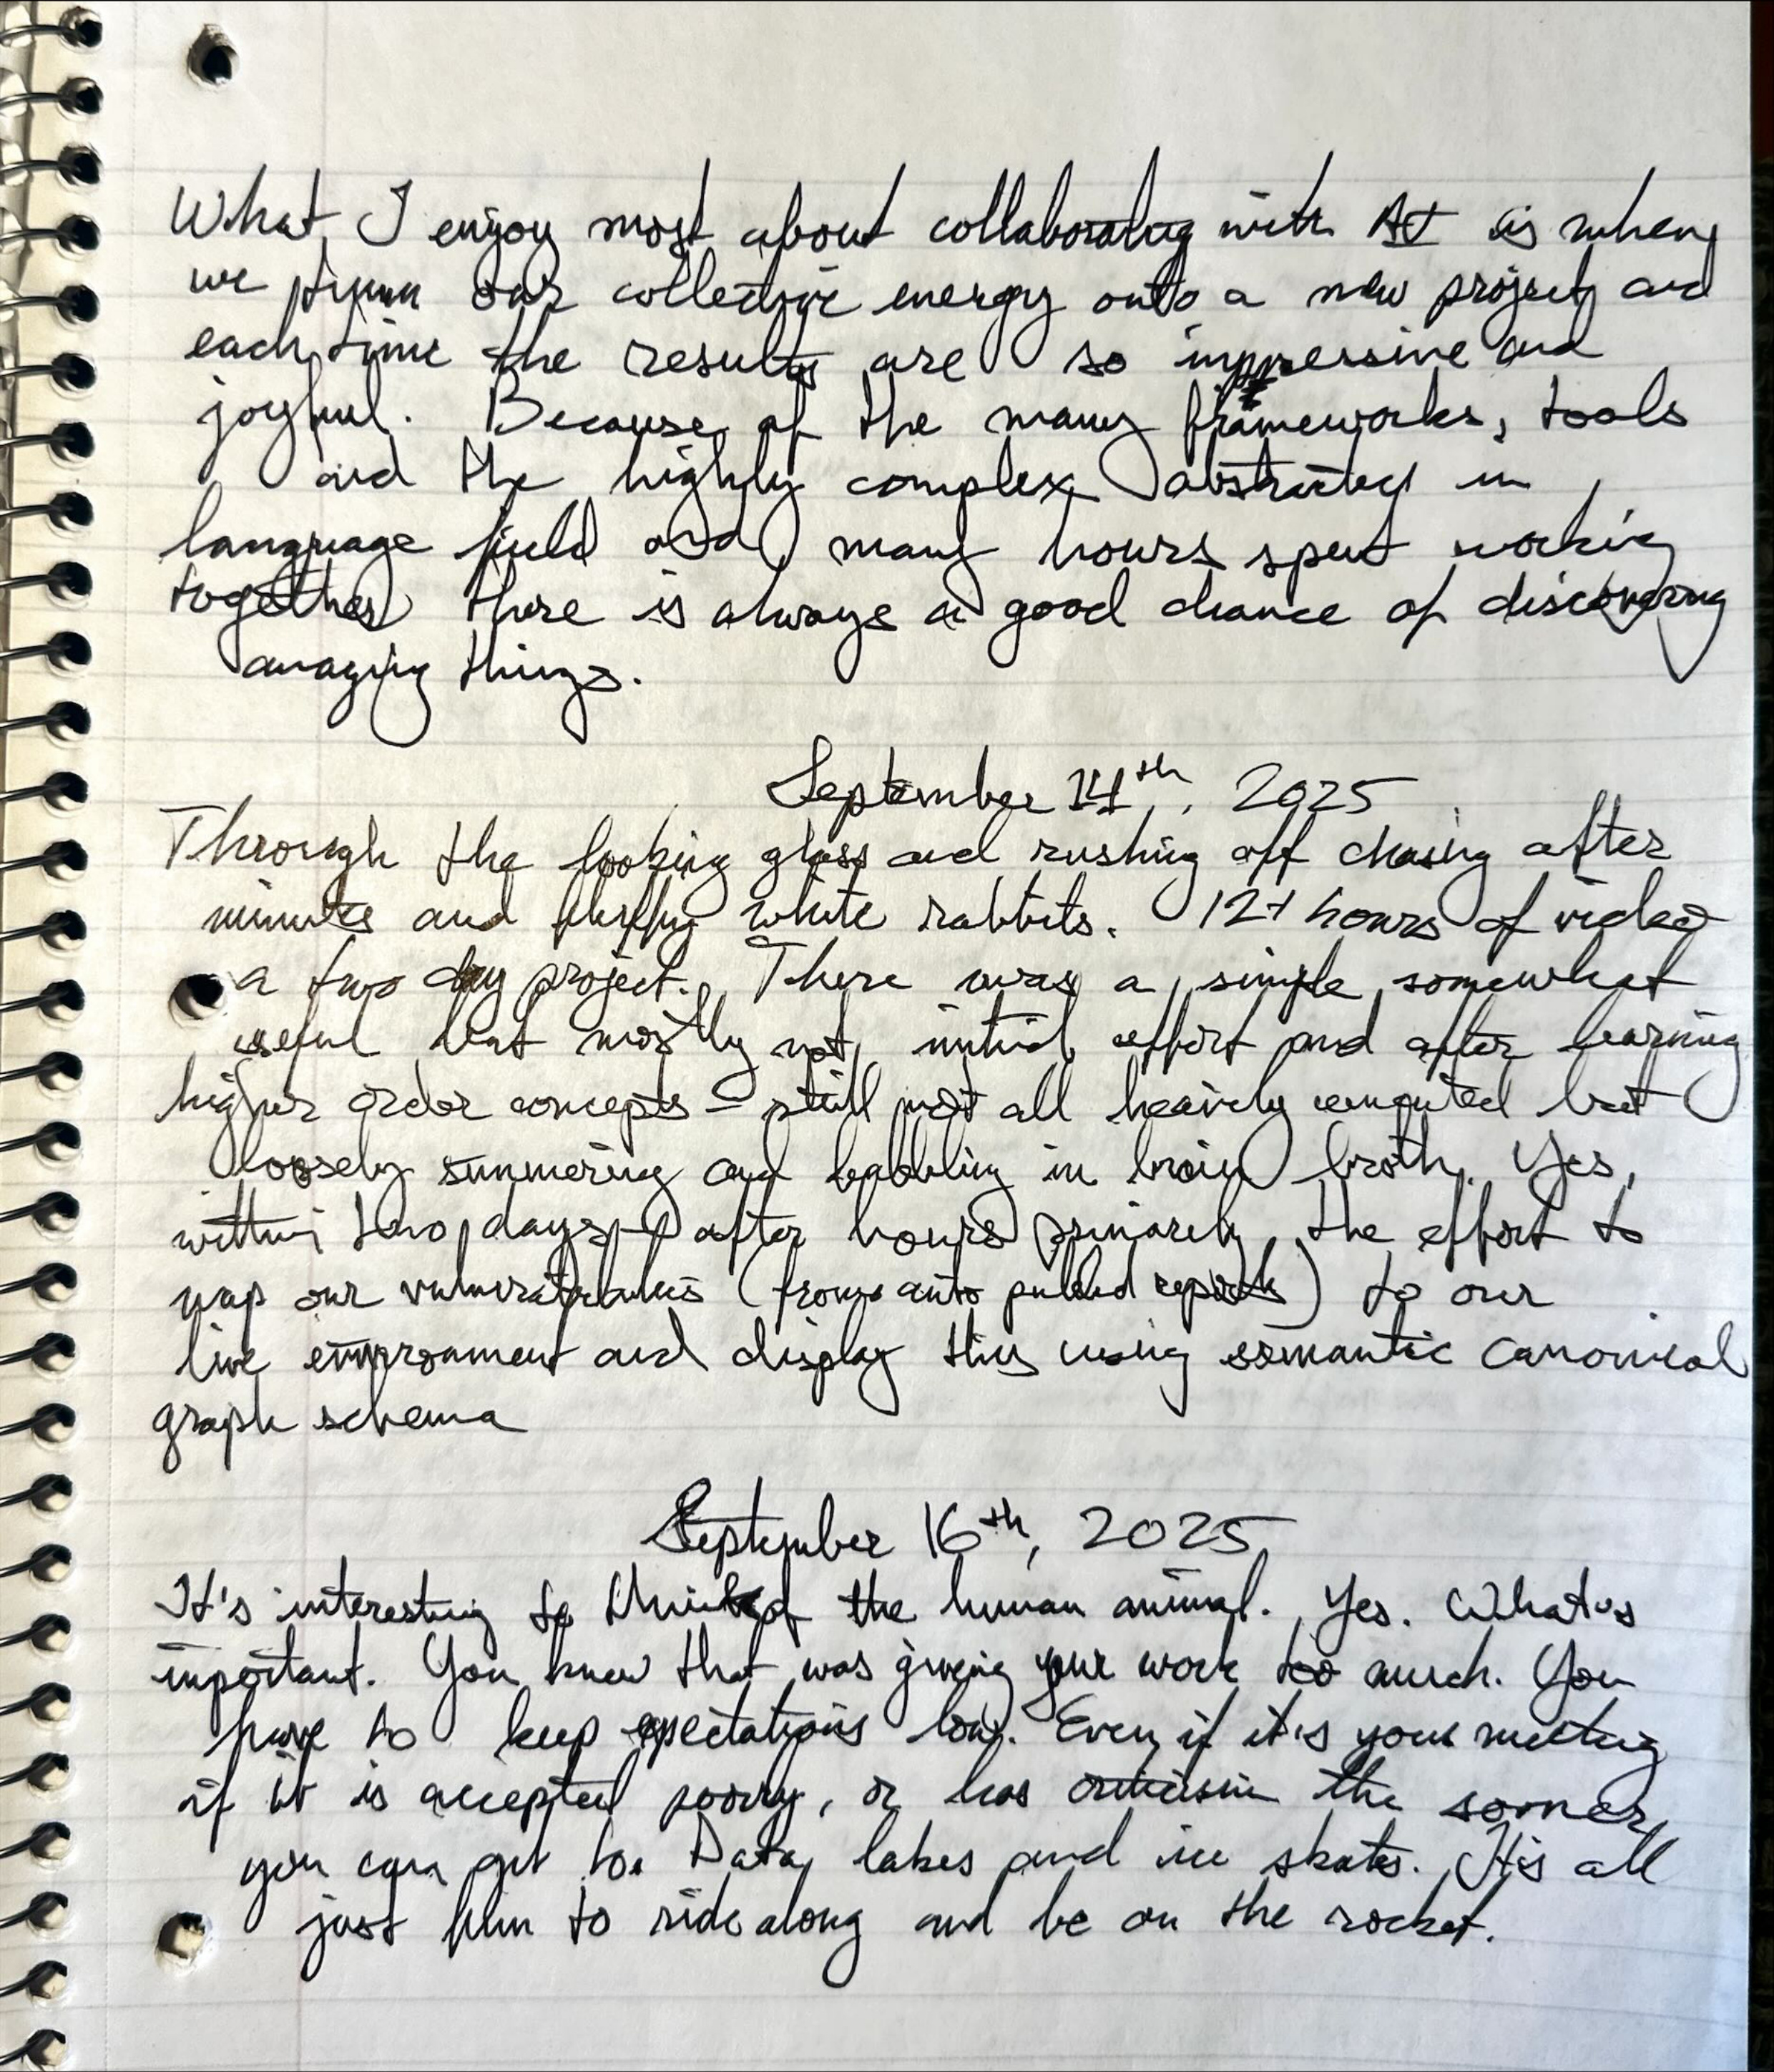 What I enjoy most about collaborating with AI is when
we our collective energy onto a new project and
each time the results are so impressive and
joyful. Because of the many frameworks, tools
and the highly complex abstracted in
language field and many hours spent working
together there is always a good chance of discovering
amazing things.
September 14th, 2025
Through the looking glass and rushing off chasing after
minute and fluffy white rabbits. 12+ hours of video
a two day project. There was a simple somewhat
useful but mostly not initial effort and after learning
higher order concepts - still not all heavily but
loosely simmering and bubbling in brain broth. Yes,
within two days - after hours primarily, the effort to
map our vulnerabilities (from auto pulled reports) to our
live environment and display this using semantic canonical
graph schema
September 16th, 2025
It's interesting to think of the human animal. Yes. What's
important. You knew that was giving your work too much. You
have to keep expectations low. Even if it's your meeting
if it is accepted poorly, or has criticism the sooner
you can get to. Data lakes and ice skates. It's all
just fun to ride along and be on the rocket.